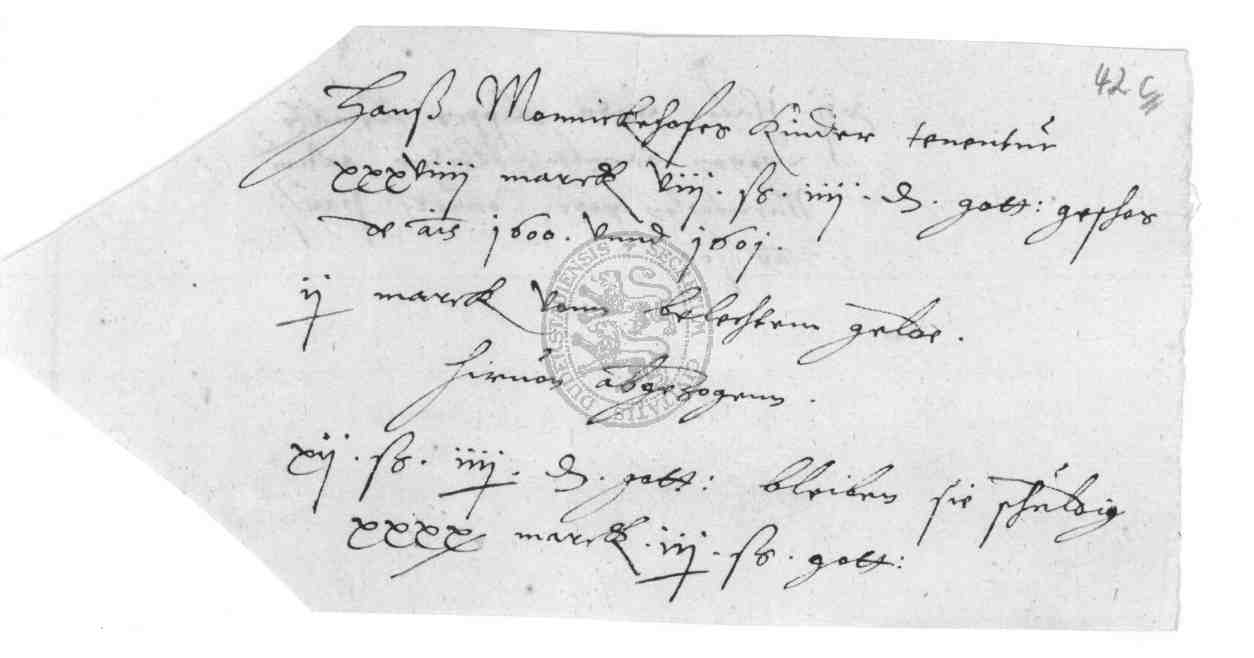 42 c
Hanß Monnickehofes Kinder tenentur
xxxviiij marck viij. ß. iiij. d. gott: geschos
de ais 1600. vnnd 1601.
ij marck vonn belechtem gelde.
hiruon abgezogenn.
xij. ß. iiij. d. gott: bleiben sie schuldig
xxxx marck. iij. ß. gott: